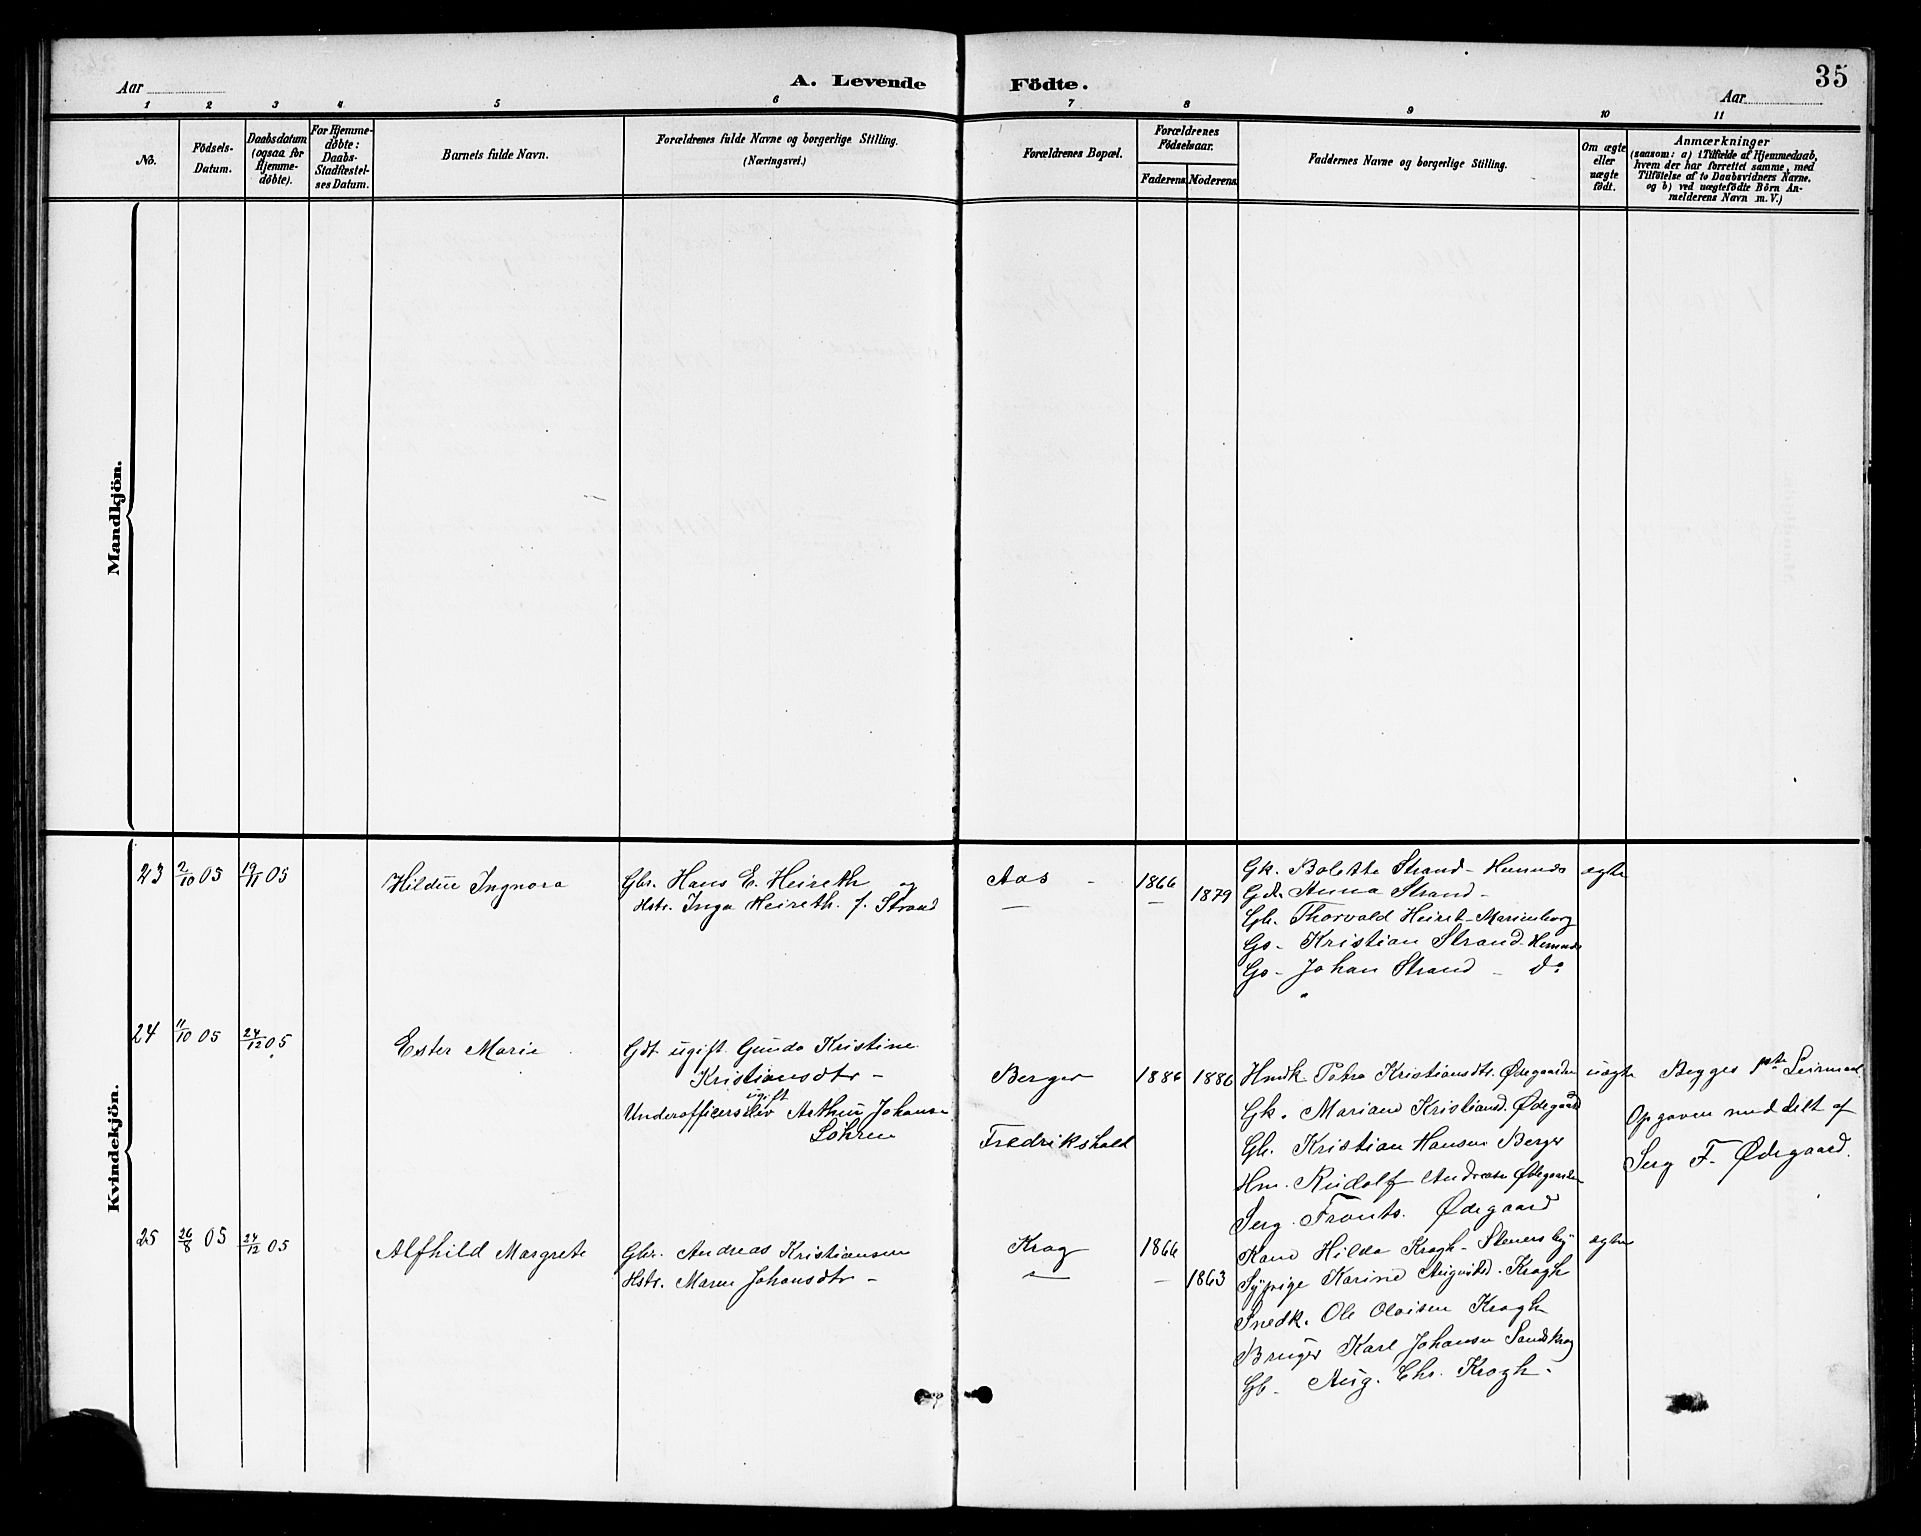 35
A. Levende Födte.
Aar
Aar
1 2 3 4 5 6 7 8 9 10 11
No.
Födsels-
Datum.
Daabsdatum
(ogsaa for
Hjemme-
döbte).
For Hjemme-
döbte:
Daabs-
Stadfæstel-
ses Datum.
Barnets fulde Navn.
Forældrenes fulde Navne og borgerlige Stilling.
(Næringsvei.)
Forældrenes Bopæl.
Forældrenes
Födselsaar.
Faderens. Moderens.
Faddernes Navne og borgerlige Stilling.
Om ægte
eller
uægte
födt.
Anmærkninger
(saasom: a) i Tilfælde af Hjemmedaab,
hvem der har forrettet samme, med
Tilföielse af to Daabsvidners Navne.
og b) ved uægtefödte Börn An-
melderens Navn m. V.)
Mandkjön.
Kvindekjön.
23 2/10 05 19/11 05
Hildur Ingnora
Gbr. Hans E. Heireth og
Hstr. Inga Heireth. f. Strand
Aas -
1866
1879
Gk. Bolette Strand - Hemnes
Gdt. Anna Strand -
Gb. Thorvald Heiret - Marienborg
Gs - Kristian Strand - Hemnes
Gs - Johan Strand - do
ægte
24 11/10 05 24/12 05
Ester Marie
Gdt ugift Gunda Kristine
Kristiansdtr -
Underofficerselev ugift Arthur Johansen
Löhren
Berger
Fredrikshald
1886 1886
Hmdk Petra Kristiansdtr. Ødegaarden
Gk. Mariane Kristiansd. Ødegaard
Gb. Kristian Hansen Berger
Hm. Rudolf Andresen Ødegaarden
Serg. Frants. Ødegaard
uægte
Begges 1ste Leiermaal
Opgaven meddelt af
Serg F. Ødegaard.
25 26/8 05 24/12 05
Alfhild Margrete
Gbr. Andreas Kristiansen
Hstr. Maren Johansdtr -
Krog
1866
1863
Kone Hilda Krogh - Stenersby
Sypige Karine Augustsd. Krogh
Snedk. Ole Olaisen Krogh
Bruger Karl Johansen Sandskrog
Gb - Aug. Chr. Krogh -
ægte